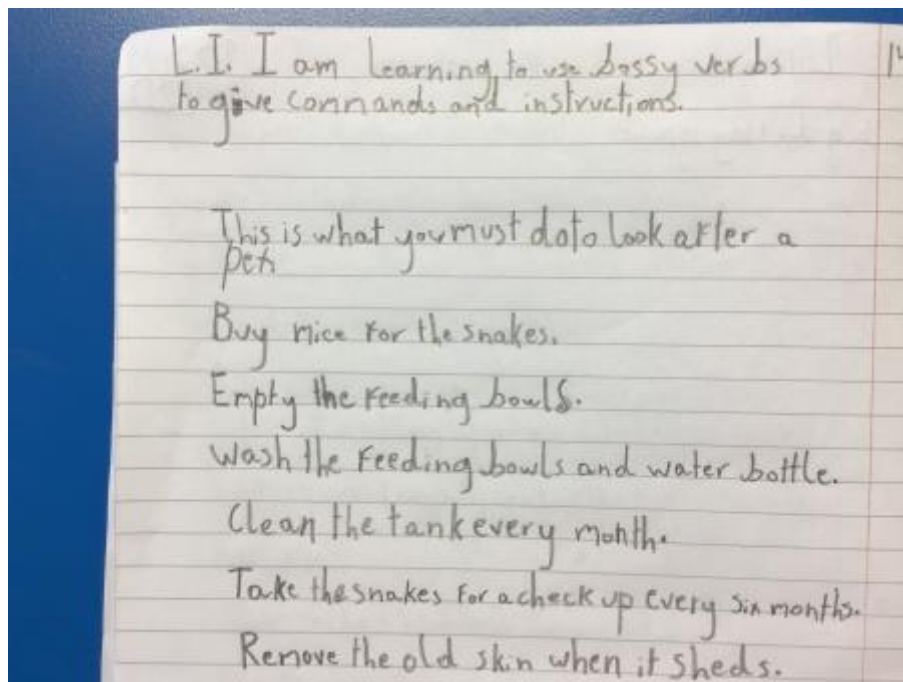 L.I. I am learning to use bossy verbs
to give commands and instructions.
This is what you must do to look after a
pet.
Buy mice for the snakes.
Empty the feeding bowls.
Wash the feeding bowls and water bottle.
Clean the tank every month.
Take the snakes for a check up every six months.
Remove the old skin when it sheds.